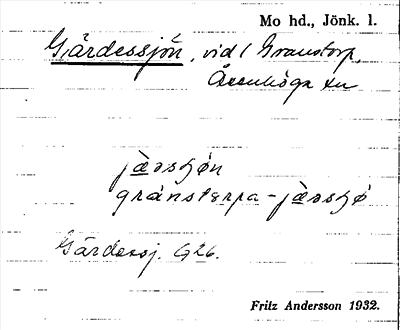 Mo hd., Jönk. l.
Gärdessjön, vid Granstorp,
Åsenhöga sn
jæ̀rsʃøn
grànstɐrpa-jæ̀rsʃø
Gärdessj. G26.
Fritz Andersson 1932.